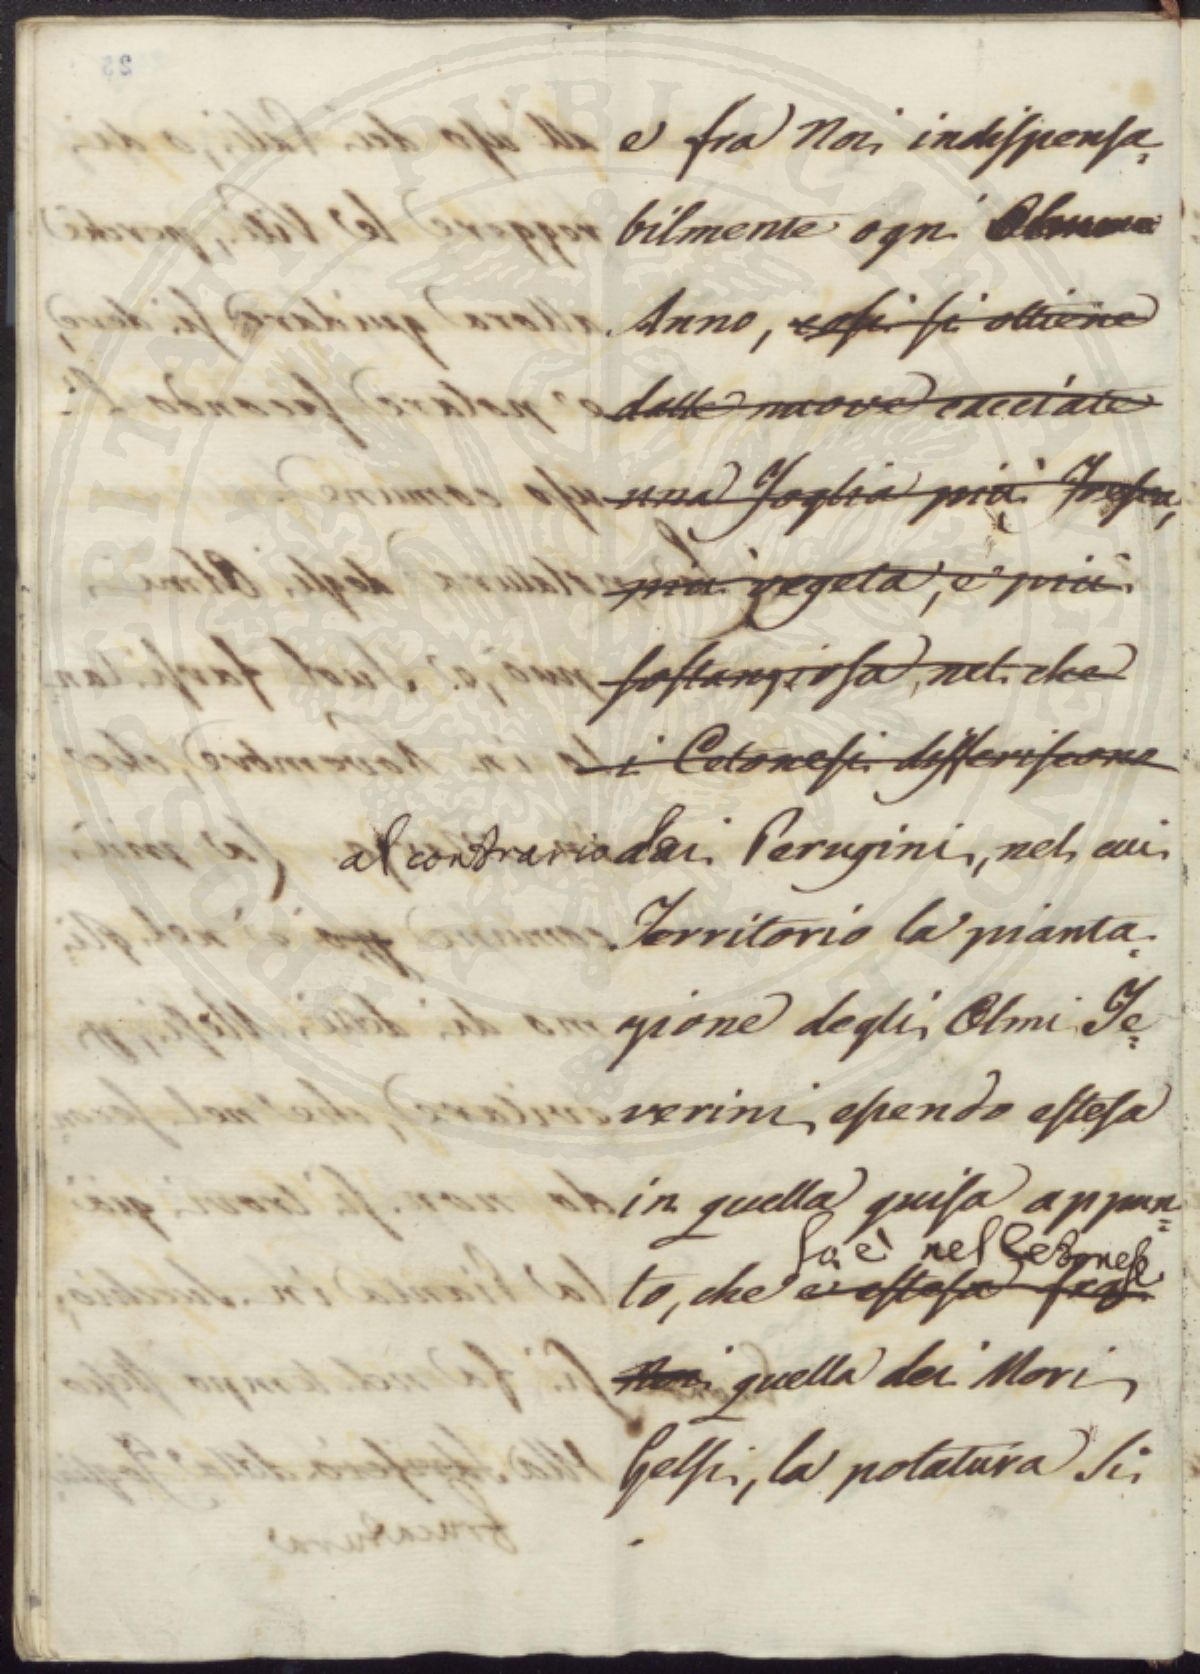 e fra Noi indispensa=
bilmente ogni
Anno, così si ottiene
dalle nuove cacciate
una Foglia più Fresca,
più vegeta, e più
sostanziosa, nel che
i Cetonesi differiscono
al contrario dai Perugini, nel cui
Territorio la pianta=
gione degli Olmi Te=
verini essendo estesa
in quella guisa appun=
fa è nel Cetonese
to, che è estesa fra
Noi quella dei Mori
Gelsi, la potatura si